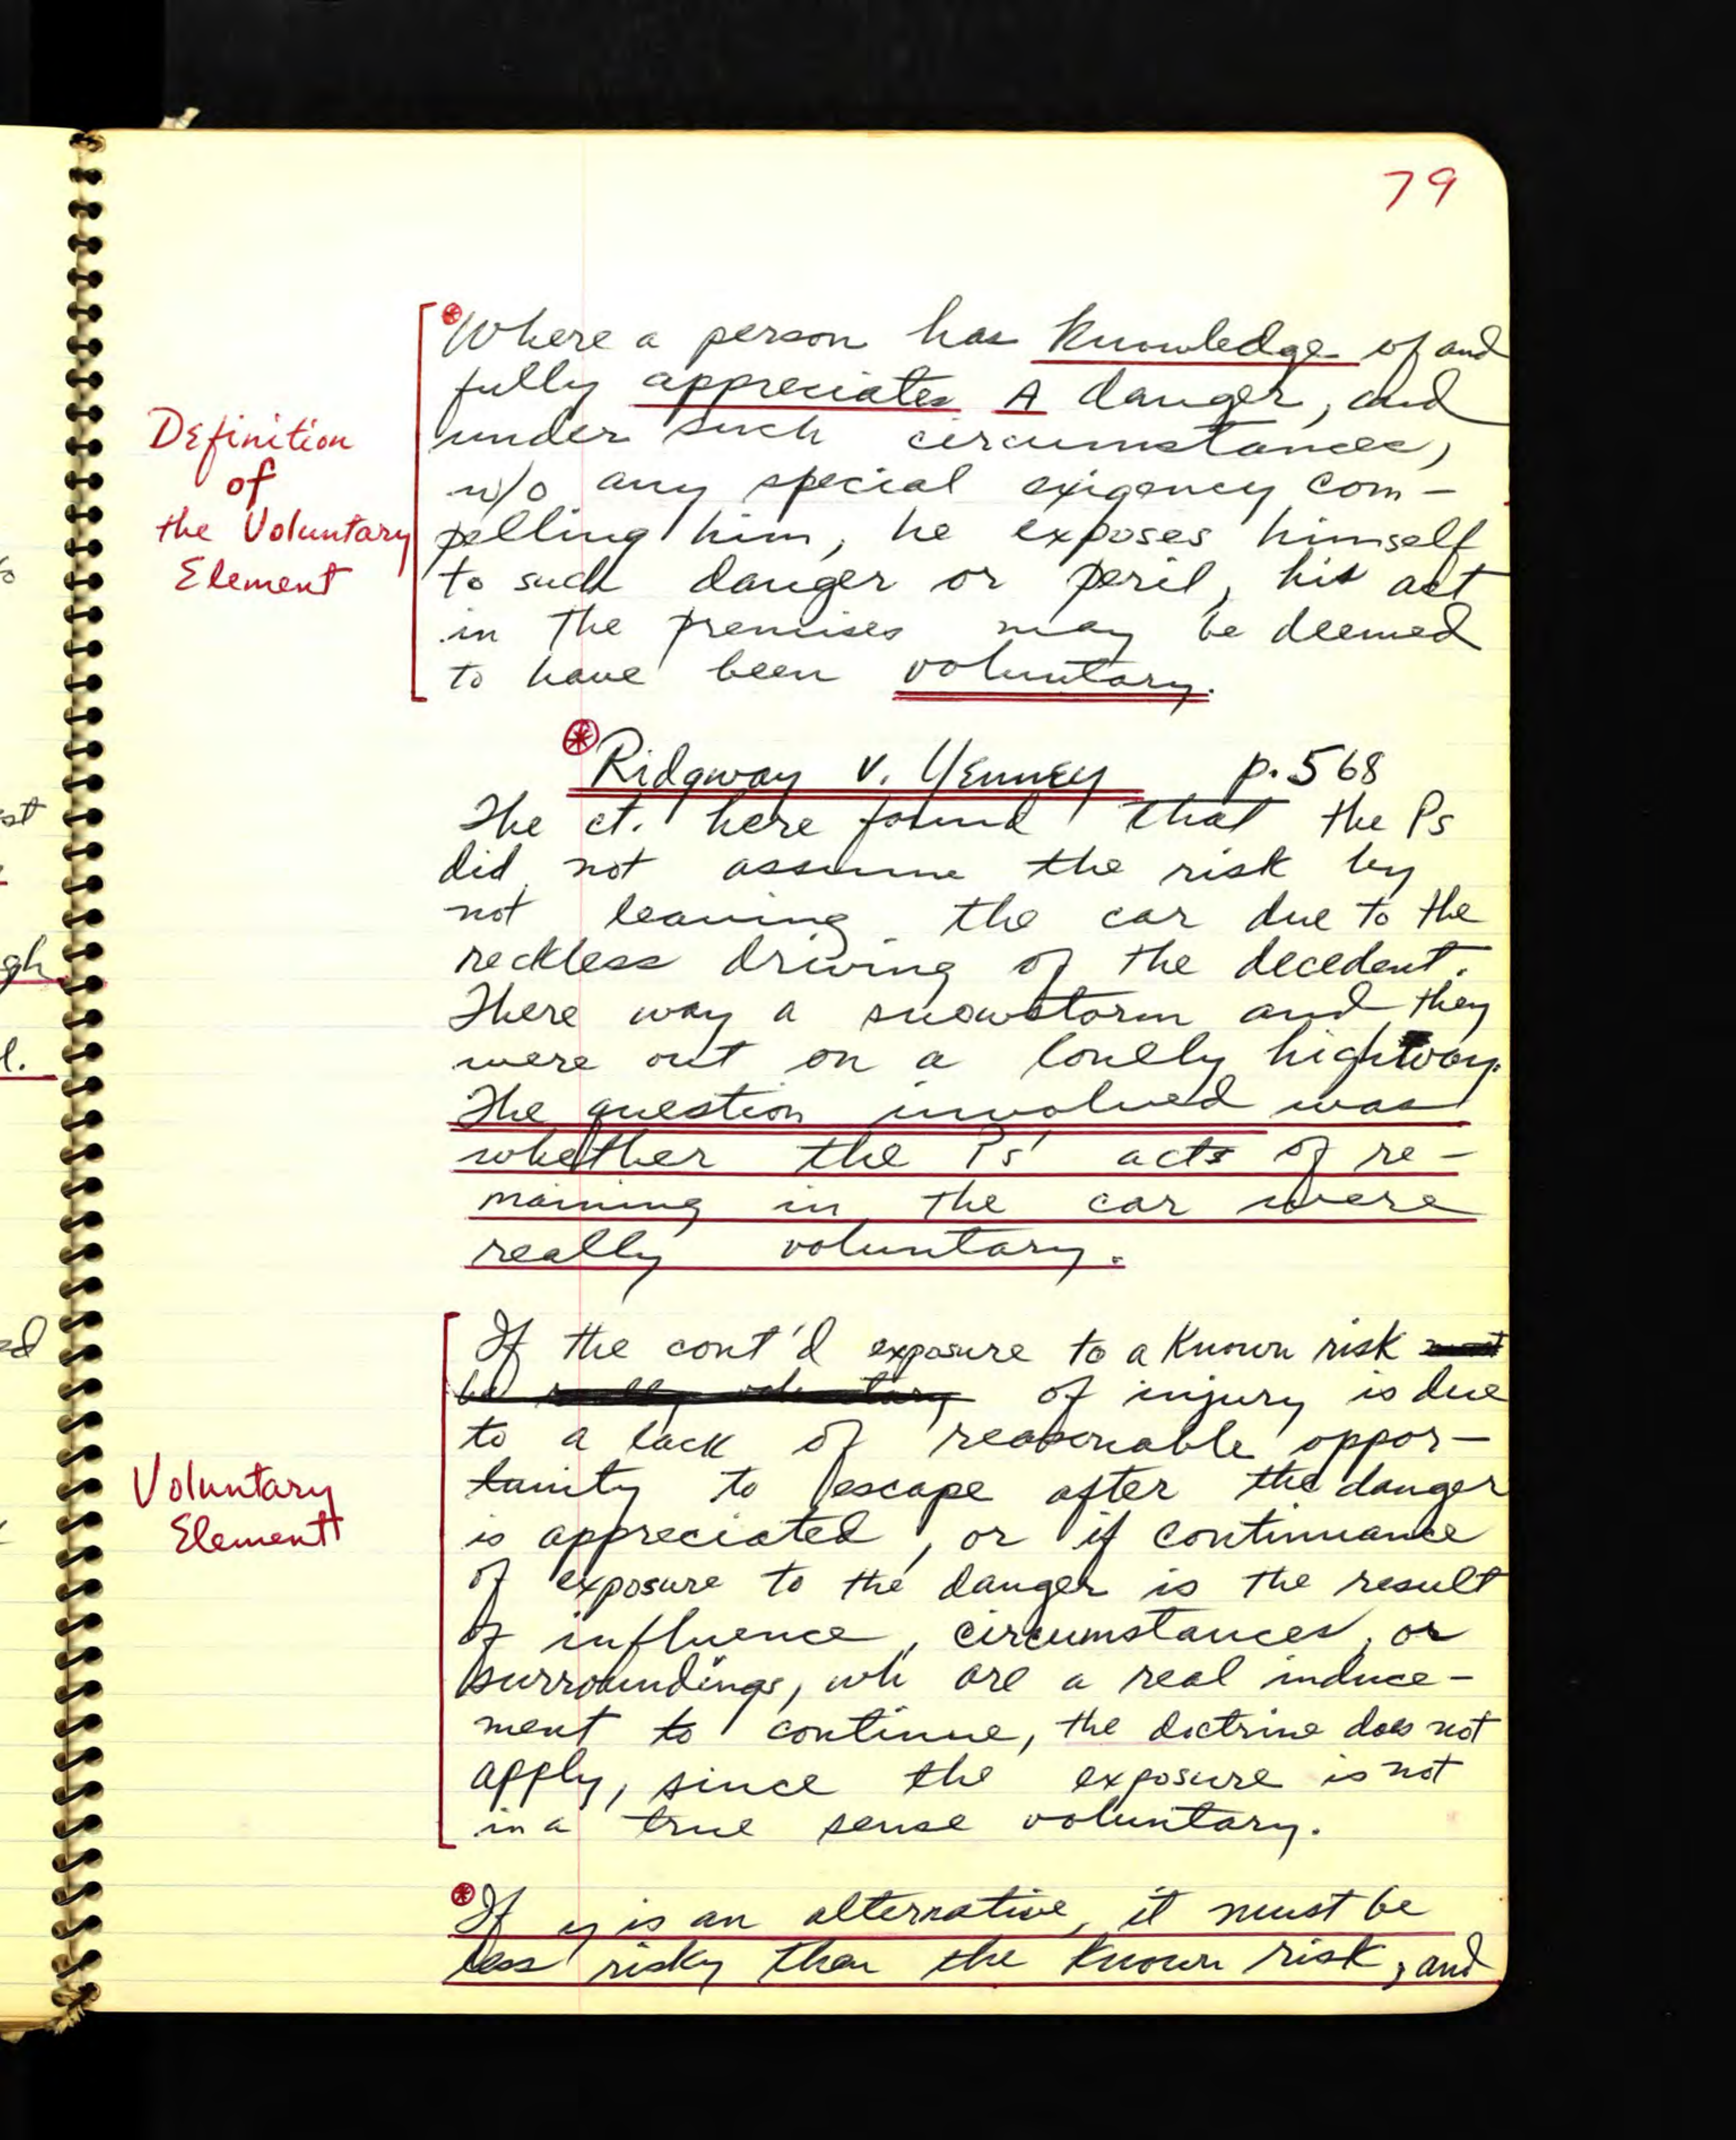 79
Where a person has knowledge of and
fully appreciates A danger, and
under such circumstances,
w/o any special exigency com-
pelling him, he exposes himself
to such danger or peril, his act
in the premises may be deemed
to have been voluntary.
Definition
of
the Voluntary
Element
Ridgway v. Yenney p. 568
The ct. here found that the Ps
did not assume the risk by
not leaving the car due to the
reckless driving of the decedent.
There way a snowstorm and they
were out on a lonely highway.
The question involved was
whether the Ps' acts of re-
maining in the car were
really voluntary.
If the cont'd exposure to a known risk must
be really voluntary of injury is due
to a lack of reasonable oppor-
tunity to escape after the danger
is appreciated, or if continuance
of exposure to the danger is the result
of influence, circumstances, or
surroundings, wh are a real induce-
ment to continue, the doctrine does not
apply, since the exposure is not
in a true sense voluntary.
Voluntary
Element
If y is an alternative, it must be
less risky than the known risk, and
st
gh
l.
ed